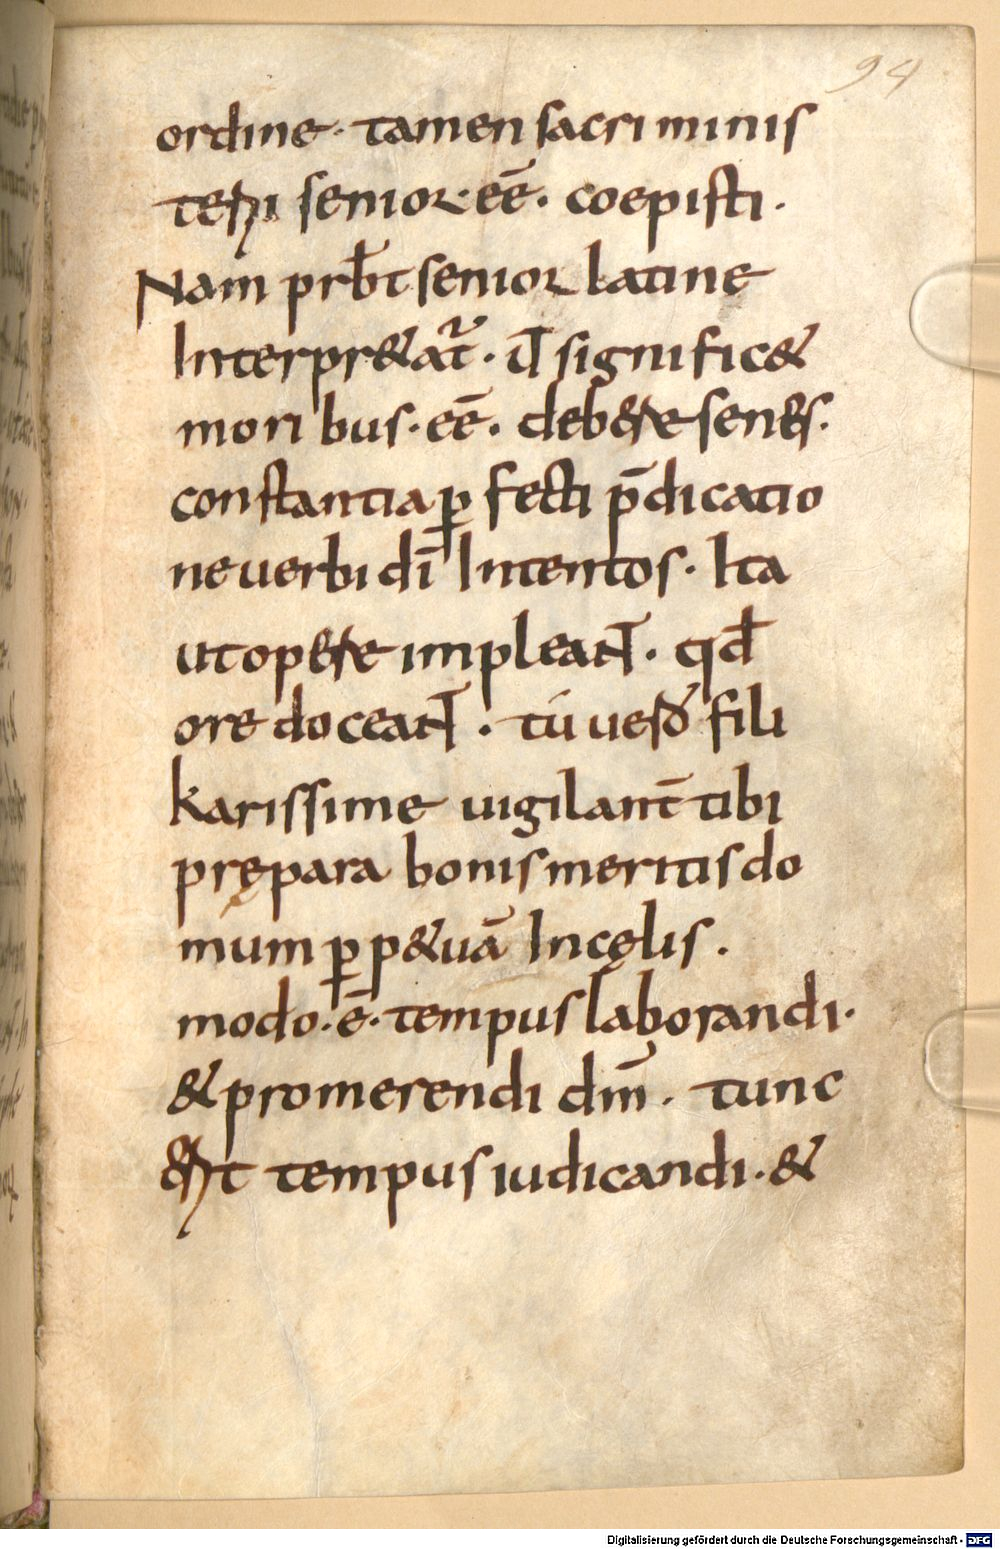 94
ordine· tamen sacri minis
terii senior· eē· coepisti·
Nam prb̄t senior latine
Interpr&at᷑· ił signific&
moribus· eē· debere senes·
constantia ꝑfecti p̄dicatio
ne uerbi dī Intentos· Ita
ut opere impleant̄· qd̄
ore doceant̄· tú uero fili
karissime uigilant̄ tibi
prępara bonis meritis do
mum ꝑp&uā In cęlis·
modo· ē· tempus laborandi·
& promerendi dm̄· tunc
erit tempus iudicandi· &
Digitalisierung gefördert durch die Deutsche Forschungsgemeinschaft - DFG